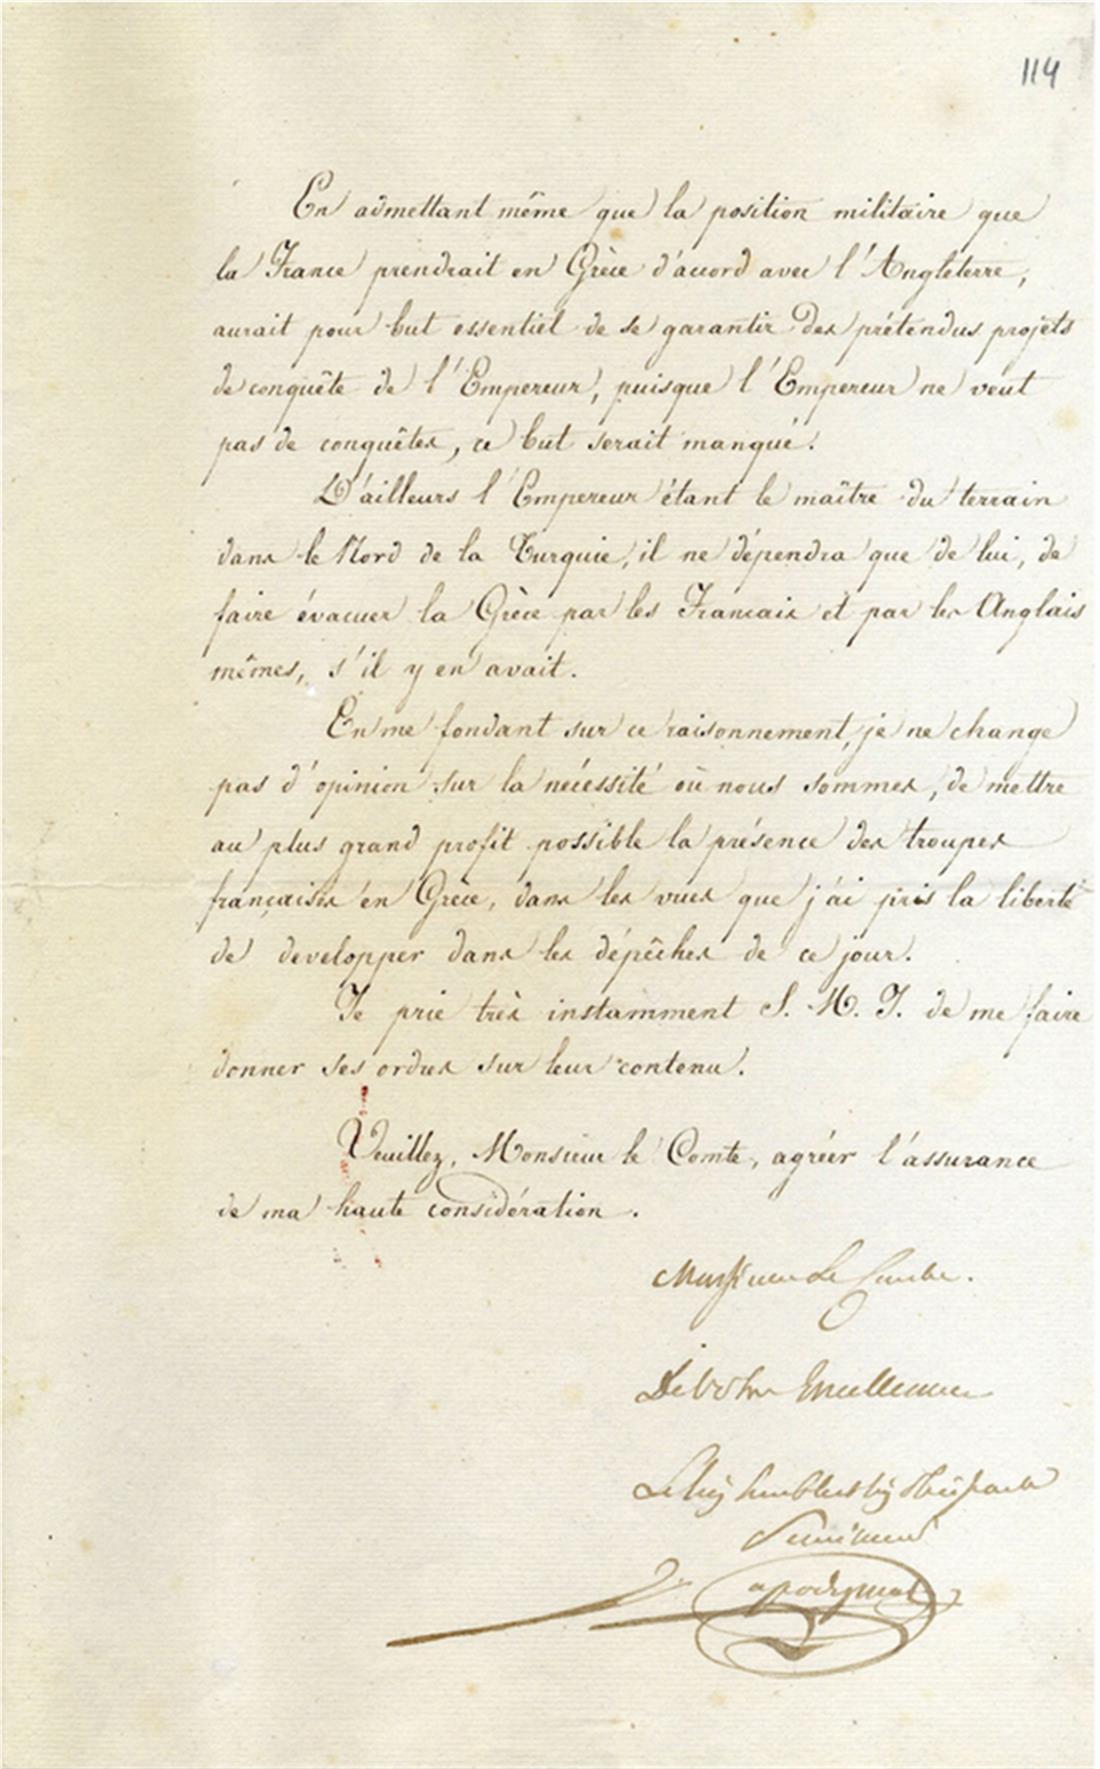 114
En admettant même que la position militaire que
la France prendrait en Grèce d'accord avec l'Angleterre,
aurait pour but essentiel de se garantir des prétendus projets
de conquête de l'Empereur, puisque l'Empereur ne veut
pas de conquêtes, ce but serait manqué.
D'ailleurs l'Empereur étant le maître du terrain
dans le Nord de la Turquie, il ne dépendra que de lui, de
faire évacuer la Grèce par les Francais et par les Anglais
mêmes, s'il y en avait.
En me fondant sur ce raisonnement, je ne change
pas d'opinion sur la nécessité où nous sommes, de mettre
au plus grand profit possible la présence des troupes
françaises en Grèce, dans les vues que j'ai pris la liberté
de developper dans les dépêches de ce jour.
Je prie très instamment S. M. I. de me faire
donner ses ordres sur leur contenu.
Veuillez, Monsieur le Comte, agréer l'assurance
de ma haute considération.
Monsieur Le Comte.
De Votre Excellence
Le très humble et très obéissant
Serviteur